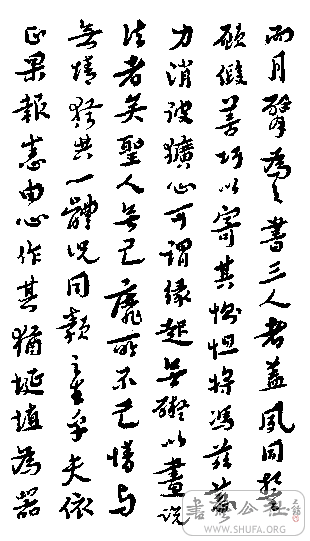 而月臂為之書三人者蓋夙同誓
願假善巧以寄其惻怛將馮茲慈
力消彼獷心可謂緣起無礙以畫說
法者矣聖人無己靡所不己情与
無情猶共一體況同類之生乎夫依
正果報悉由心作其猶埏埴為器
書法公社
WWW.SHUFA.ORG